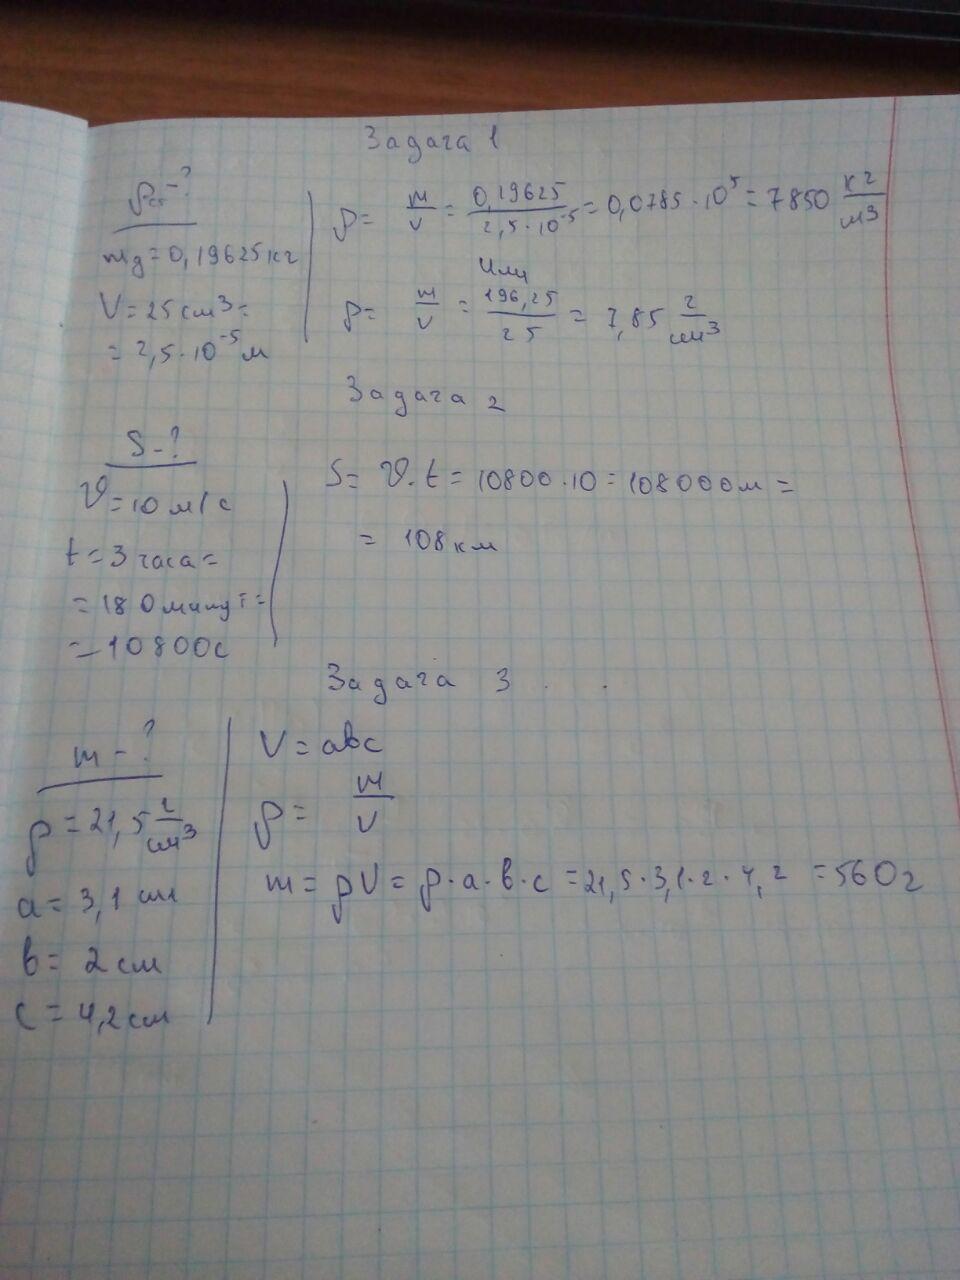 Задача 1
ρст - ?
mд = 0,19625 кг
V = 25 см³ =
= 2,5 · 10⁻⁵ м
ρ = m/V = 0,19625/2,5 · 10⁻⁵ = 0,0785 · 10⁵ = 7850 кг/м³
Или
ρ = m/V = 196,25/25 = 7,85 г/см³
Задача 2
S - ?
𝜗 = 10 м/с
t = 3 часа =
= 180 минут =
= 10800 с
S = 𝜗 · t = 10800 · 10 = 108000 м =
= 108 км
Задача 3
m - ?
ρ = 21,5 г/см³
a = 3,1 см
в = 2 см
c = 4,2 см
V = авс
ρ = m/V
m = ρV = ρ · а · в · с = 21,5 · 3,1 · 2 · 4,2 = 560 г